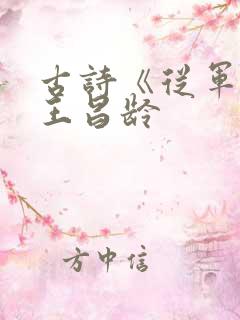 古詩《從軍
王昌龄
方中信